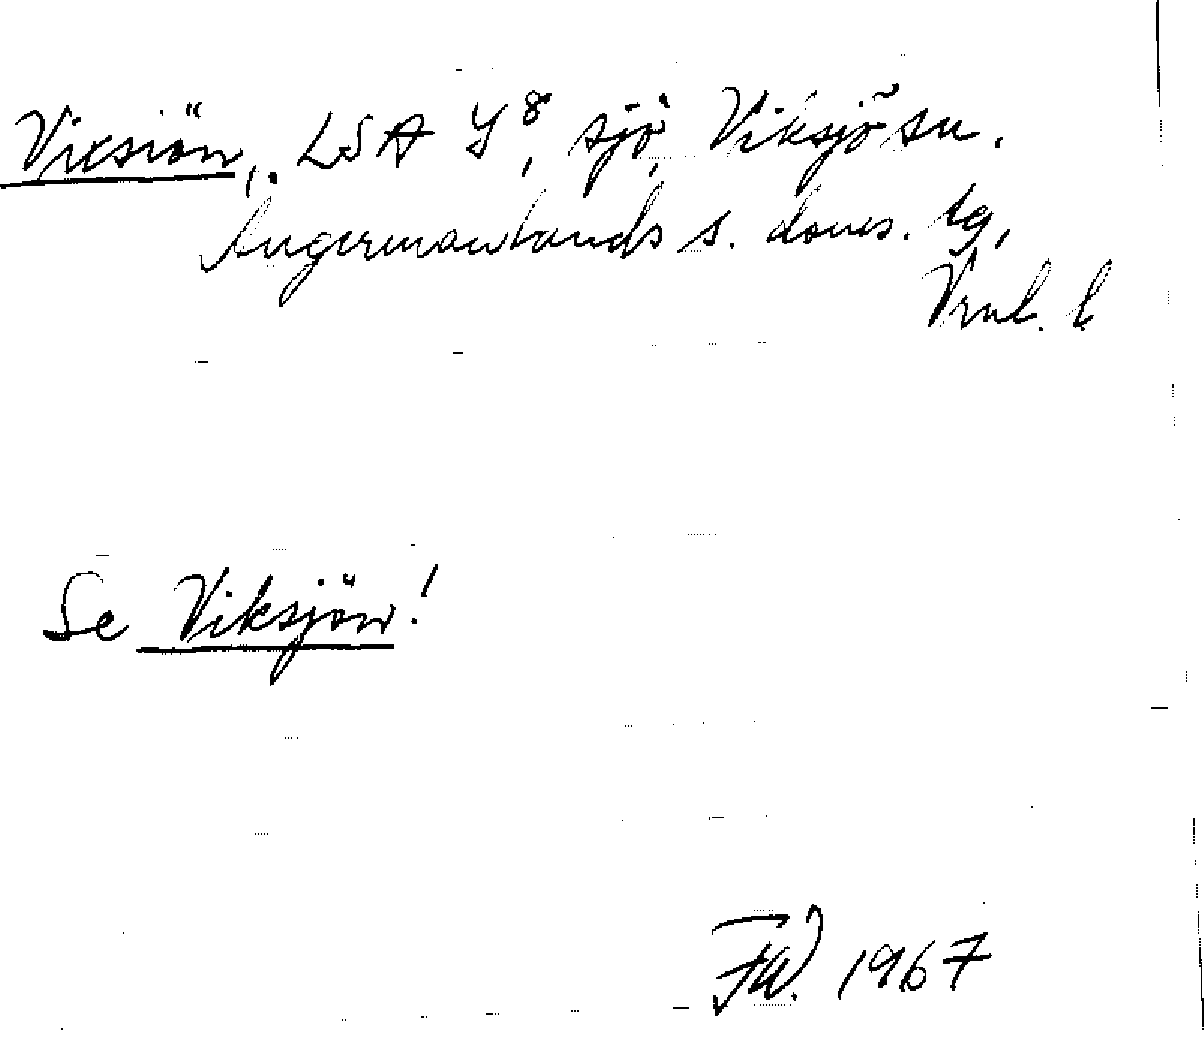 Vicsiön, LSA Y8, sjö, Viksjö sn.
Ångermanlands s. doms. tg,
Vrnl. l.
Se Viksjön!
FW. 1967